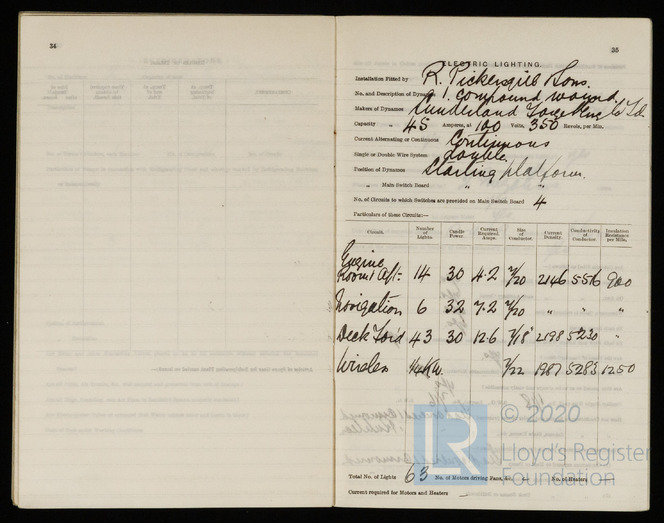 34
35
ELECTRIC LIGHTING.
Installation Fitted by R. Pickersgill & Sons.
No. and Description of Dynamos 1. Compound wound
Makers of Dynamos Sunderland Forge & Eng Co Ltd.
Capacity " 45 Amperes, at 100 Volts, 350 Revols. per Min.
Current Alternating or Continuous Continuous
Single or Double Wire System double
Position of Dynamos Starting platform.
" Main Switch Board " "
No. of Circuits to which Switches are provided on Main Switch Board 4
Particulars of these Circuits:—
Circuit. Number of Lights. Candle Power. Current Required. Amps. Size of Conductor. Current Density. Conductivity of Conductor. Insulation Resistance per Mile.
Engine Room & Aft. 14 30 4.2 7/20 2146 5556 900
Navigation 6 32 7.2 7/20 " " "
Deck For'd 43 30 12.6 7/18 2198 5230 "
Wireless 7/22 1987 5283 1250
Total No. of Lights 63 No. of Motors driving Fans, &c. — No. of Heaters —
Current required for Motors and Heaters —
LR © 2020
Lloyd's Register
Foundation